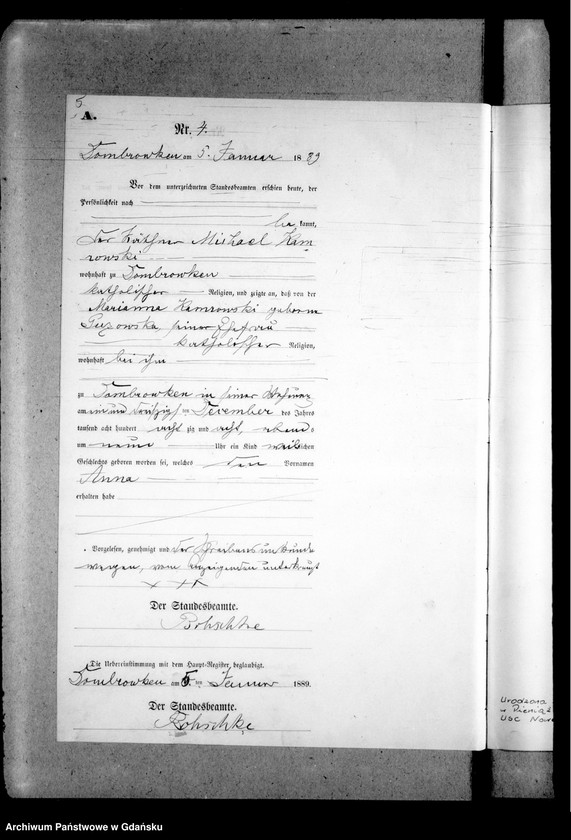 5
A.
Nr. 4.
Dombrowken am 5. Januar 1889
Vor dem unterzeichneten Standesbeamten erschien heute, der
Persönlichkeit nach
be kannt,
der Käthner Michael Kam
rowski
wohnhaft zu Dombrowken
katholischer Religion, und zeigte an, daß von der
Marianna Kamrowski geborene
Guzowska, seiner Ehefrau
katholischer Religion,
wohnhaft bei ihm
zu Dombrowken in seiner Wohnung
am neunundzwanzigsten December des Jahres
tausend acht hundert acht zig und acht,
um neun Uhr ein Kind weiblichen
Geschlechts geboren worden sei, welches den Vornamen
Anna
erhalten habe
Vorgelesen, genehmigt und der Schreibensunkunde
wegen, vom Anzeigenden unterkreuzt
+++
Der Standesbeamte.
Rohschke
Die Uebereinstimmung mit dem Haupt-Register, beglaubigt.
Dombrowken am 5. ten Januar 1889.
Der Standesbeamte.
Rohschke
Urodzona
USC
Archiwum Państwowe w Gdańsku